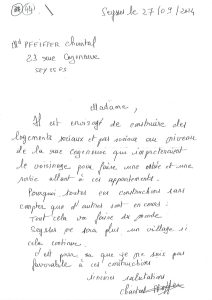 Seysses le 27/09/2024
PFEIFFER Chantal
23 rue Cazeneuve
SEYSSES
Madame,
Il est envisagé de construire des
logements sociaux et pas sociaux au niveau
de la rue Cazeneuve qui
le voisinage pour faire une entrée et une
sortie allant à ces appartements.
Pourquoi toutes ces constructions sans
compter que d'autres sont en cours :
Tout cela va faire du monde
Seysses ne sera plus un village si
cela continue.
C'est pour ça que je ne suis pas
favorable à ces constructions
sincères salutations
Chantal Pfeiffer